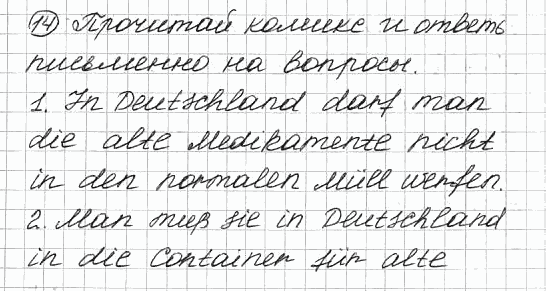 14 Прочитай комикс и ответь
письменно на вопросы.
1. In Deutschland darf man
die alte Medikamente nicht
in den normalen Müll werfen.
2. Man muß sie in Deutschland
in die Container für alte